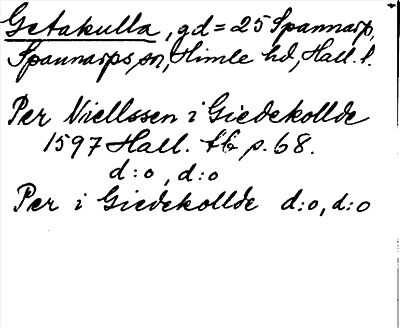 Getakulla, gd = 25 Spannarp,
Spannarps sn, Himle hd, Hall. l.
Per Niellssen i Giedekollde
1597 Hall. tb p. 68.
d:o, d:o
Per i Giedekollde d:o, d:o